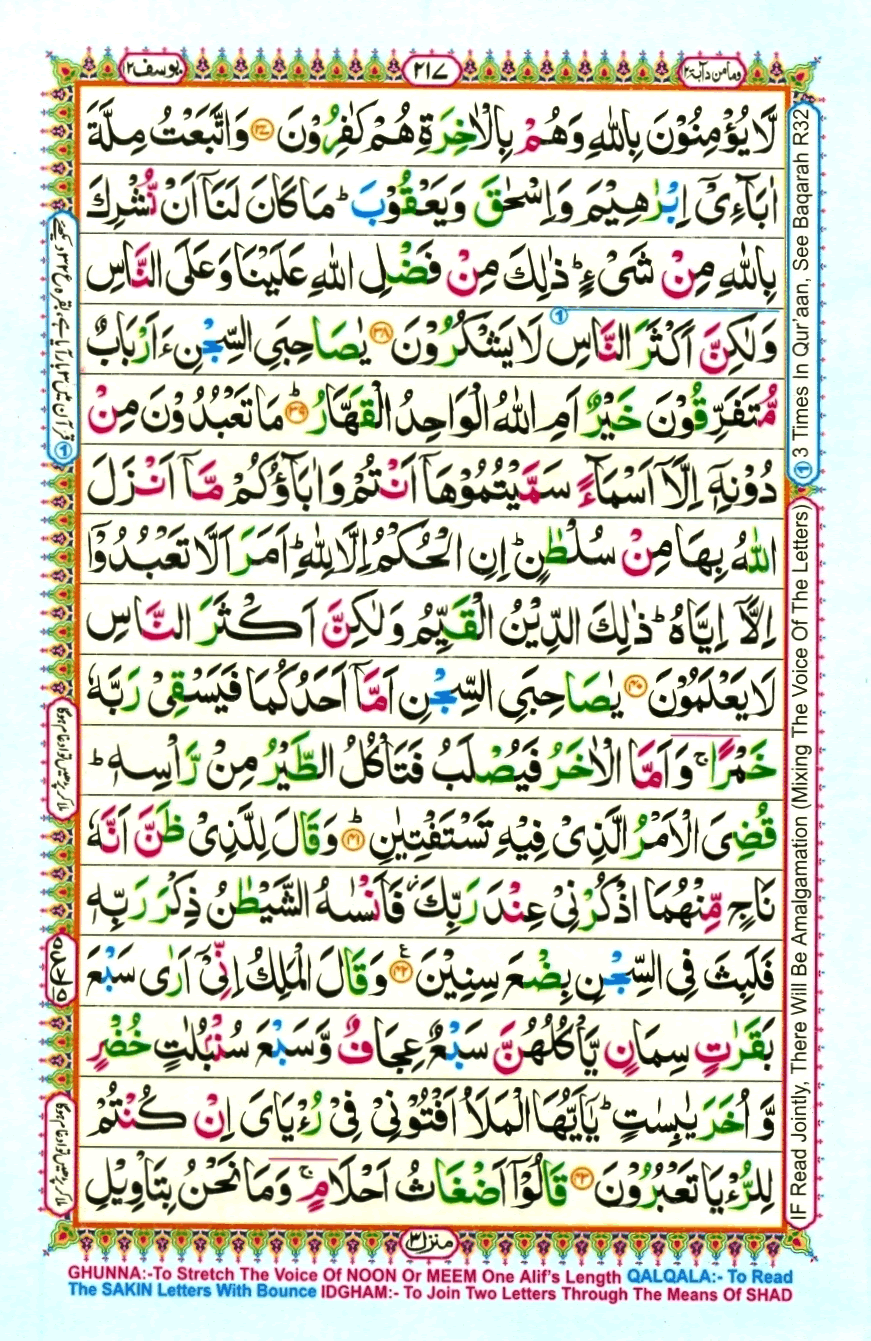 وما من دآبة ١٢
٢١٧
يوسف ١٢
لَّا يُؤْمِنُوْنَ بِاللّٰهِ وَهُمْ بِالْاٰخِرَةِ هُمْ كٰفِرُوْنَ ﴿٣٧﴾ وَاتَّبَعْتُ مِلَّةَ
اٰبَآءِىْٓ اِبْرٰهِيْمَ وَاِسْحٰقَ وَيَعْقُوْبَ ؕ مَا كَانَ لَنَآ اَنْ نُّشْرِكَ
بِاللّٰهِ مِنْ شَىْءٍ ؕ ذٰلِكَ مِنْ فَضْلِ اللّٰهِ عَلَيْنَا وَعَلَى النَّاسِ
وَلٰكِنَّ اَكْثَرَ النَّاسِ لَا يَشْكُرُوْنَ ﴿٣٨﴾ يٰصَاحِبَىِ السِّجْنِ ءَاَرْبَابٌ
مُّتَفَرِّقُوْنَ خَيْرٌ اَمِ اللّٰهُ الْوَاحِدُ الْقَهَّارُ ؕ﴿٣٩﴾ مَا تَعْبُدُوْنَ مِنْ
دُوْنِهٖٓ اِلَّآ اَسْمَآءً سَمَّيْتُمُوْهَآ اَنْتُمْ وَاٰبَآؤُكُمْ مَّآ اَنْزَلَ
اللّٰهُ بِهَا مِنْ سُلْطٰنٍ ؕ اِنِ الْحُكْمُ اِلَّا لِلّٰهِ ؕ اَمَرَ اَلَّا تَعْبُدُوْٓا
اِلَّآ اِيَّاهُ ؕ ذٰلِكَ الدِّيْنُ الْقَيِّمُ وَلٰكِنَّ اَكْثَرَ النَّاسِ
لَا يَعْلَمُوْنَ ﴿٤٠﴾ يٰصَاحِبَىِ السِّجْنِ اَمَّآ اَحَدُكُمَا فَيَسْقِىْ رَبَّهٗ
خَمْرًا ۚ وَاَمَّا الْاٰخَرُ فَيُصْلَبُ فَتَاْكُلُ الطَّيْرُ مِنْ رَّاْسِهٖ ؕ
قُضِىَ الْاَمْرُ الَّذِىْ فِيْهِ تَسْتَفْتِيٰنِ ؕ﴿٤١﴾ وَقَالَ لِلَّذِىْ ظَنَّ اَنَّهٗ
نَاجٍ مِّنْهُمَا اذْكُرْنِىْ عِنْدَ رَبِّكَ فَاَنْسٰىهُ الشَّيْطٰنُ ذِكْرَ رَبِّهٖ
فَلَبِثَ فِى السِّجْنِ بِضْعَ سِنِيْنَ ﴿٤٢﴾ وَقَالَ الْمَلِكُ اِنِّىْٓ اَرٰى سَبْعَ
بَقَرٰتٍ سِمَانٍ يَّاْكُلُهُنَّ سَبْعٌ عِجَافٌ وَّسَبْعَ سُنْبُلٰتٍ خُضْرٍ
وَّاُخَرَ يٰبِسٰتٍ ؕ يٰٓاَيُّهَا الْمَلَاُ اَفْتُوْنِىْ فِىْ رُءْيَاىَ اِنْ كُنْتُمْ
لِلرُّءْيَا تَعْبُرُوْنَ ﴿٤٣﴾ قَالُوْٓا اَضْغَاثُ اَحْلَامٍ ۚ وَمَا نَحْنُ بِتَاْوِيْلِ
منزل ٣
① 3 Times In Qur'aan, See Baqarah R32
IF Read Jointly, There Will Be Amalgamation (Mixing The Voice Of The Letters)
GHUNNA:-To Stretch The Voice Of NOON Or MEEM One Alif's Length QALQALA:- To Read
The SAKIN Letters With Bounce IDGHAM:- To Join Two Letters Through The Means Of SHAD